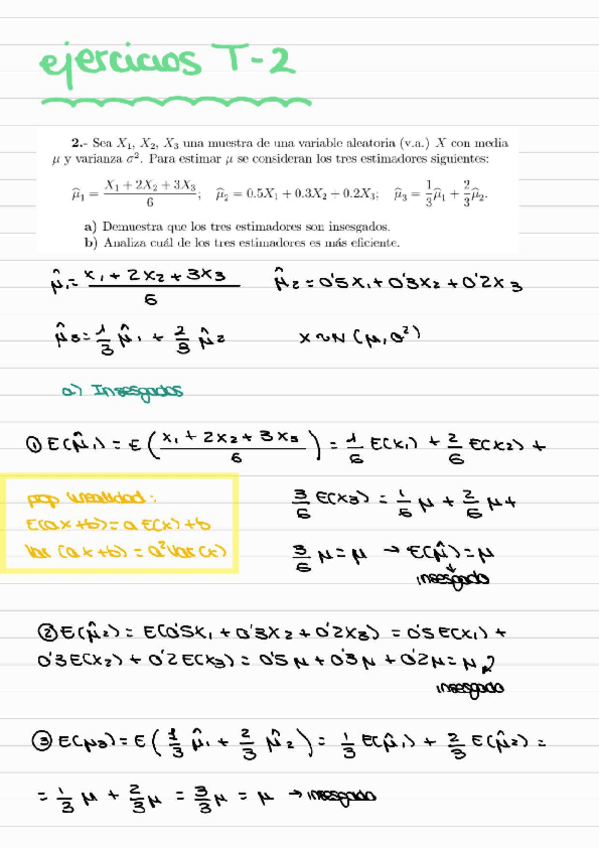 ejercicios T-2
2.- Sea X₁, X₂, X₃ una muestra de una variable aleatoria (v.a.) X con media
μ y varianza σ². Para estimar μ se consideran los tres estimadores siguientes:
μ̂₁ = (X₁ + 2X₂ + 3X₃)/6; μ̂₂ = 0.5X₁ + 0.3X₂ + 0.2X₃; μ̂₃ = 1/3 μ̂₁ + 2/3 μ̂₂.
a) Demuestra que los tres estimadores son insesgados.
b) Analiza cuál de los tres estimadores es más eficiente.
μ̂₁ = (x₁ + 2x₂ + 3x₃)/6 μ̂₂ = 0'5x₁ + 0'3x₂ + 0'2x₃
μ̂₃ = 1/3 μ̂₁ + 2/3 μ̂₂ x ~ N(μ, σ²)
a) Insesgados
① E(μ̂₁) = E((x₁ + 2x₂ + 3x₃)/6) = 1/6 E(x₁) + 2/6 E(x₂) +
3/6 E(x₃) = 1/6 μ + 2/6 μ +
3/6 μ = μ → E(μ̂) = μ
↓
insesgado
prop linealidad:
E(ax+b) = a E(x) + b
Var(ax+b) = a² Var(x)
② E(μ̂₂) = E(0'5x₁ + 0'3x₂ + 0'2x₃) = 0'5 E(x₁) +
0'3 E(x₂) + 0'2 E(x₃) = 0'5 μ + 0'3 μ + 0'2 μ = μ
insesgado
③ E(μ₃) = E(1/3 μ̂₁ + 2/3 μ̂₂) = 1/3 E(μ̂₁) + 2/3 E(μ̂₂) =
= 1/3 μ + 2/3 μ = 3/3 μ = μ → insesgado